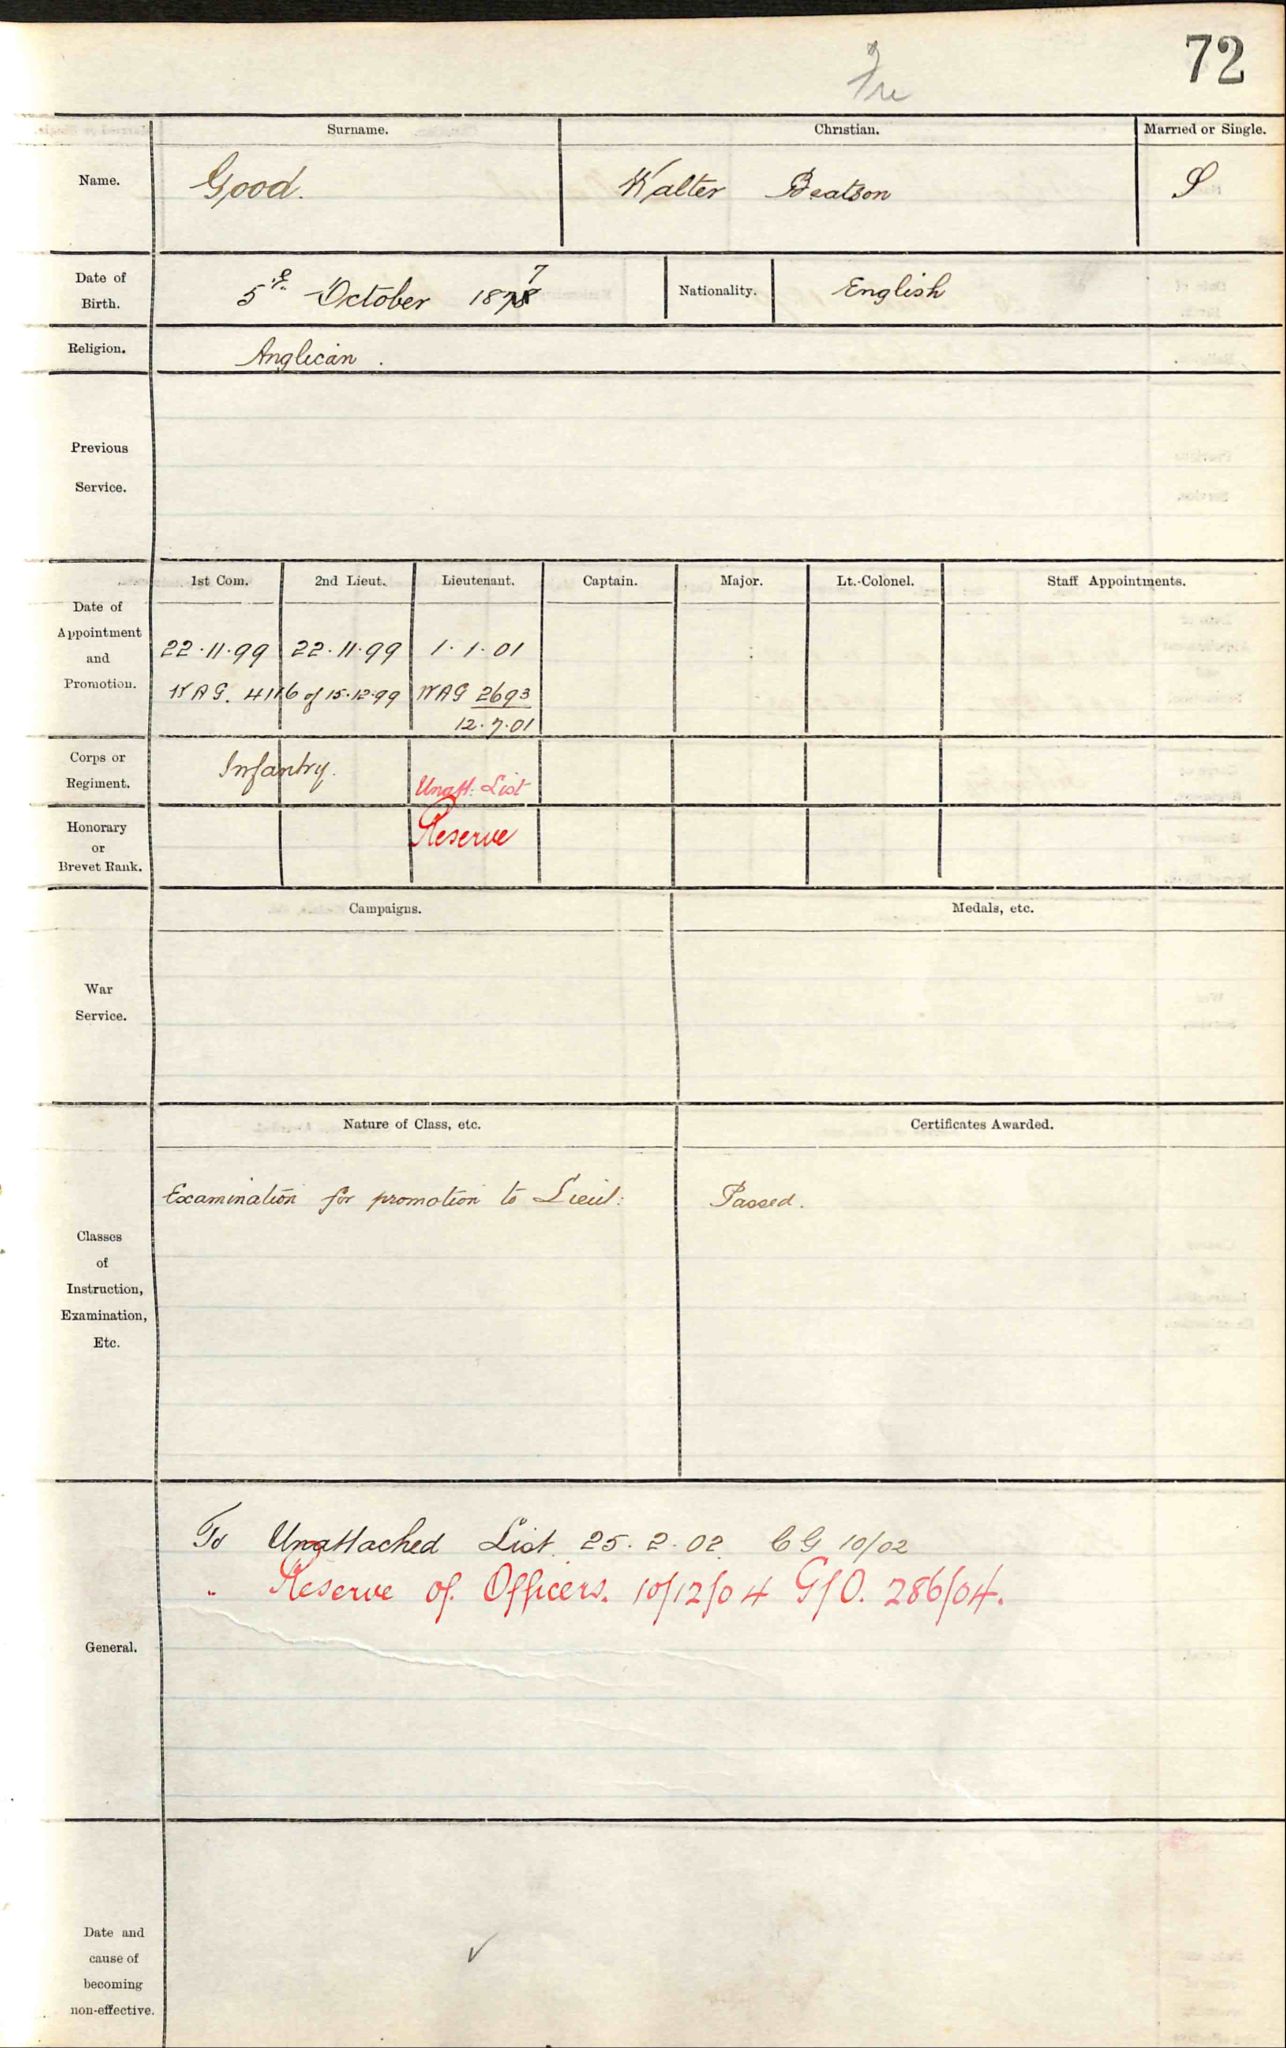 72
Surname. Christian. Married or Single.
Name. Good. Walter Beatson S
Date of Birth. 5th October 1878 7 Nationality. English
Religion. Anglican.
Previous
Service.
1st Com. 2nd Lieut. Lieutenant. Captain. Major. Lt.-Colonel. Staff Appointments.
Date of
Appointment
and
Promotion.
22.11.99 22.11.99 1.1.01
WAG. 4116 of 15.12.99 WAG 2693
12.7.01
Corps or
Regiment.
Infantry. Unatt: List
Honorary
or
Brevet Rank.
Reserve
Campaigns. Medals, etc.
War
Service.
Nature of Class, etc. Certificates Awarded.
Examination for promotion to Lieut: Passed.
Classes
of
Instruction,
Examination,
Etc.
To Unattached List. 25.2.02. CG 10/02
" Reserve of Officers. 10/12/04 G/O. 286/04.
General.
Date and
cause of
becoming
non-effective.